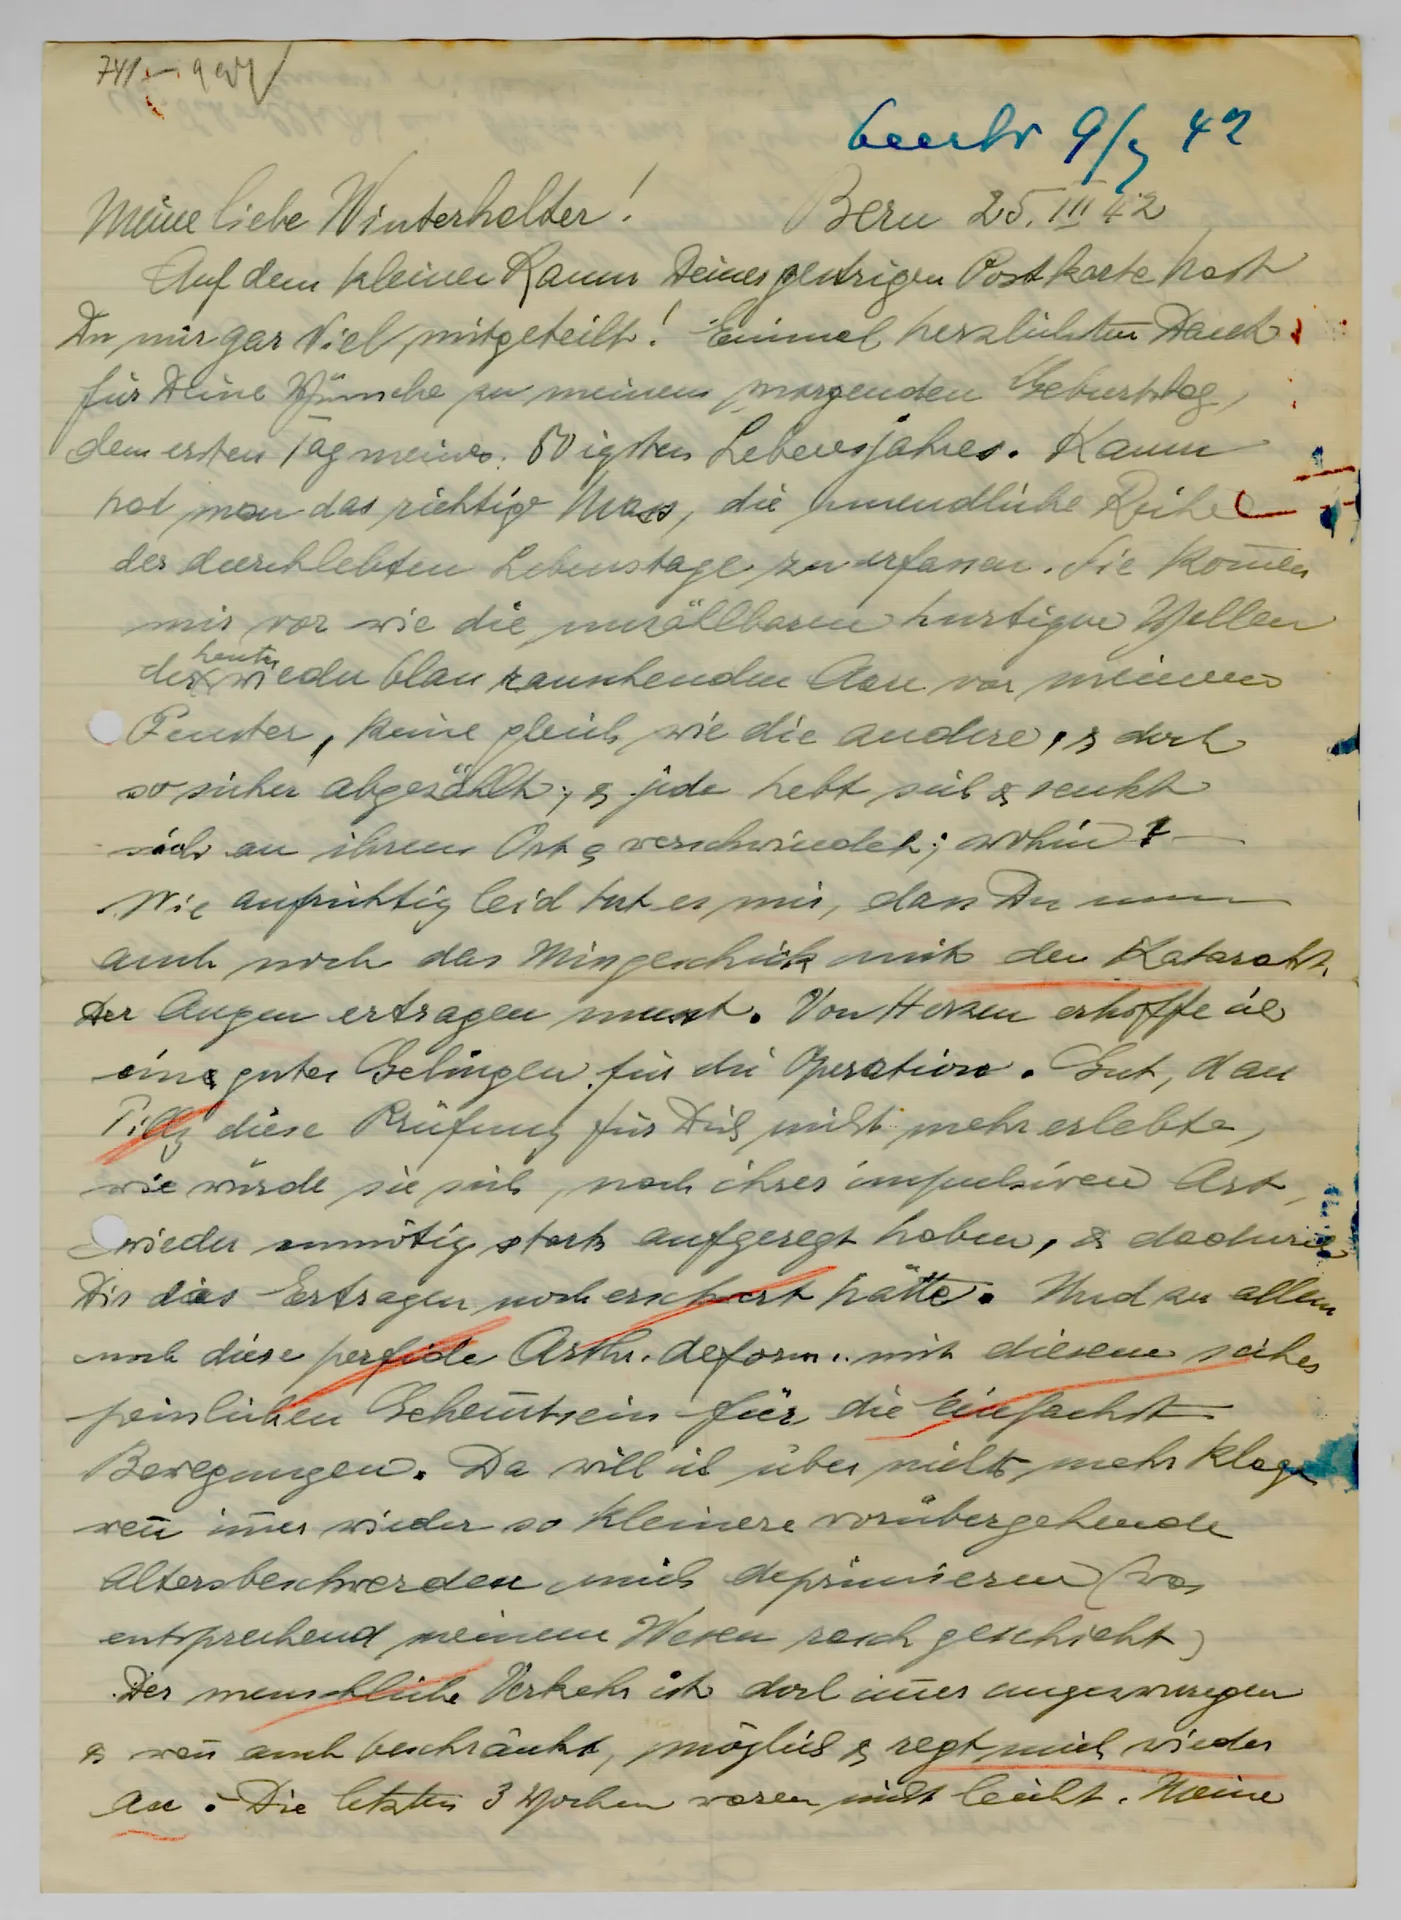 beantw 9/5 42
Bern 25. III 42
Meine liebe Winterhalter!
Auf dem kleinen Raum Deines gestrigen Postkarte hast
Du mir gar Viel mitgeteilt! Einmal herzlichsten Dank
für Deine Wünsche zu meinem morgenden Geburtstag,
dem ersten Tag meines 80igsten Lebensjahres. Kaum
hat man das richtige Mass, die unendliche Reihe
der durchlebten Lebenstage zu erfassen. Sie kom̅en
mir vor wie die unzählbaren hurtigen Wellen
der heute wieder blau rauschenden Aare vor meinem
Fenster, keine gleich wie die andere, & doch
so sicher abgezählt; & jede hebt sich & senkt
sich an ihrem Ort & verschwindet; wohin? —
Wie aufrichtig leid tut es mir, dass Du nun
auch noch das Missgeschick mit den Katarakt.
der Augen ertragen musst. Von Herzen erhoffe ich
eine gutes Gelingen für die Operation. Gut, dass
Tilly diese Prüfung für Dich nicht mehr erlebte,
wie würde sie sich, nach ihrer impulsiven Art,
wieder unnötig stark aufgeregt haben, & dadurch
Dir das Ertragen noch erschwert hätte. Und zu allem
noch diese perfide Arthr. deform. mit diesem
peinlichen Gehem̅tsein für die Einfachst
Bewegungen. Da will ich über nichts mehr klagen
wen̅ im̅er wieder so kleinere vorübergehende
Altersbeschwerden mich deprimieren (was
entsprechend meinem Wesen rasch geschieht)
Der menschliche Verkehr ist doch im̅er
& wen̅ auch beschränkt, möglich & regt mich wieder
an. Die letzten 3 Wochen waren nicht leicht. Meine